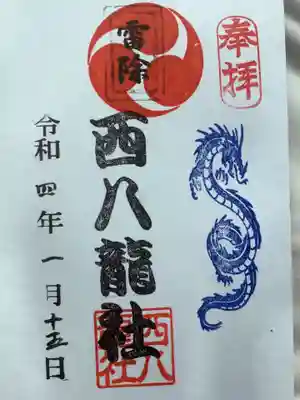 奉拝
雷除
西八龍社
西八龍社
令和四年一月十五日